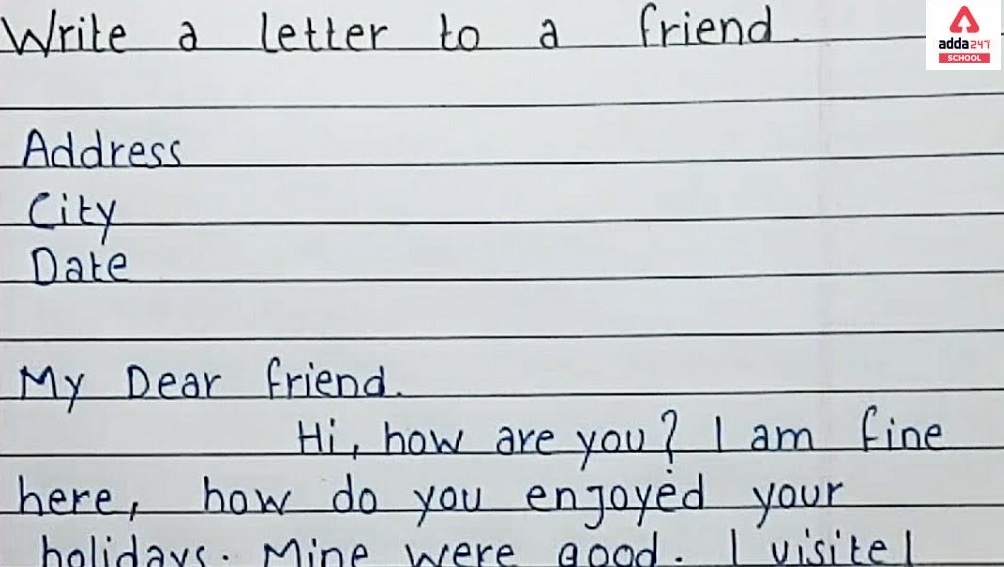 Write a letter to a friend.
adda247
SCHOOL
Address
City
Date
My Dear friend.
Hi, how are you? I am fine
here, how do you enjoyed your
holidays. Mine were good. I